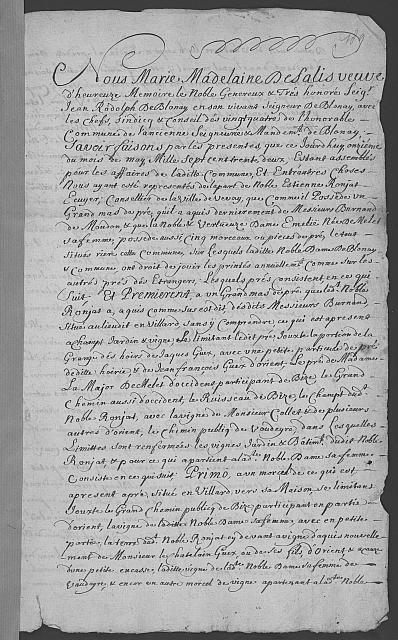 Nous Marie Madelaine DeSalis veuve
d'heureuze Memoire le Noble Genereux & Très honoré Seigr
Jean Rodolph DeBlonay en son vivant Seigneur DeBlonay, avec
les Chefs, sindicq & Conseil des vingtquatre de l'honorable
Commune de l'ancienne Seigneurie & Mandemt de Blonay,
Savoir faisons par les presentes, que ce Jourdhuy onzieme
du mois de may Mille Sept cent trent deux, Estant assemblés
pour les affaires de laditte Commune, Et Entr'autres choses
Nous ayant esté representés de la part de Noble Estienne Ronjat
Ecuyer, Conseiller de la Ville de Vevay, que comme il Possede un
Grand mas de pré, qu'il a aquis dernierement de Messieurs Burnand
de Moudon & que la Noble & Vertueuze Dame Emelie
sa femme possede aussi cinq morceaux ou pieces de pré, le tout
situés riere cette Commune, Sur lesquels laditte Noble Dame DeBlonay
& Commune ont droit de jouir les printés annuellemt Comme sur les
autres prés des Etrangers, Lesquels prés consistent en ce qui
Suit. Et Premierement, a un Grand mas de prés que ledt Noble
Ronjat a, aquis comme sus est dit desdits Messieurs Burnand,
Situé au lieu dit en Villard, sans y Comprendre ce qui est apresent
a champt Jardin & vigne, se limitant ledit pré, Jouxte la portion de la
Grange des hoirs de Jaques Guex, avec une petite particule de pré
de ditte hoirie, & de Jean François Guex d'orient, le pré de Madame
La Major DeMelet d'occident participant de Bize, le Grand
Chemin aussi d'occident, le Ruisseau de Bize, le champt dudt
Noble Ronjat, avec la vigne du Monsieur Collet & de plusieurs
autres d'orient, le chemin public de Voudeyre, dans lesquelles
Limittes sont renfermées les vignes Jardin & Batimt dudit Noble
Ronjat, & pour ce qui apartient a ladte Noble Dame sa femme
Consiste en ce qui suit Primo, a un morcel de ce qui est
apresent apré, situé en Villard vers sa Maison, se limitant
Jouxte le Grand chemin public de Bize participant en partie
d'orient, la vigne de laditte Noble Dame sa femme, avec en petite
partie, la terre dudt Noble Ronjat cy devant a vigne d'aquis nouvelle
ment de Monsieur le chatelain Guex, ou de ses fils, d'Orient &
d'une petite encasse, laditte vigne de ladte Noble Dame sa femme de
vaudayre, & encor un autre morcel de vigne apartenant a ladte Noble